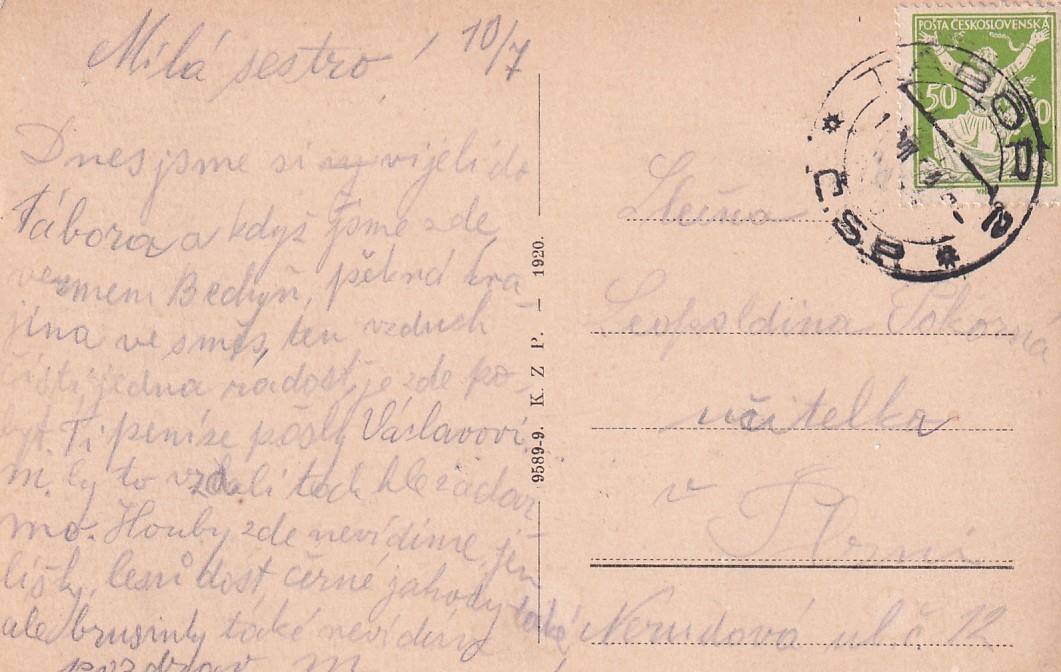 Milá sestro! 10/7
Dnes jsme si vyjeli do
Tábora a když jsme zde
Bechyň, pěkná kra-
jina ve směs, ten vzduch
čistý jedna radost je zde po-
byt. Ti peníze pošly Václavovi
to vzali tech hle zadar
mo. Houby zde nevidíme, jen
lišky, lesů dost černé jahody také
ale brusinky také nevidíme
pozdrav M
9589-9. K. Z. P. – 1920.
POŠTA ČESKOSLOVENSKÁ
50 50
TÁBOR 2
Č.S.P.
Slečna
Leopoldina Pokorná
učitelka
v
Nerudová ul. č. 12